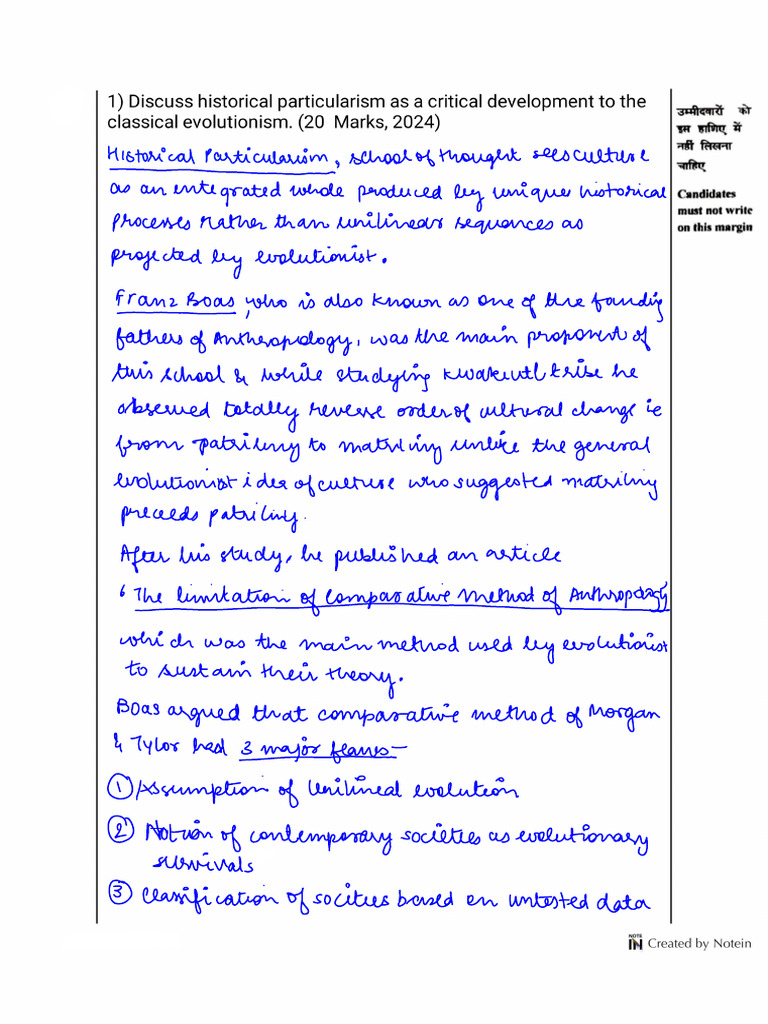 1) Discuss historical particularism as a critical development to the
classical evolutionism. (20 Marks, 2024)
उम्मीदवारों को
इस हाशिए में
नहीं लिखना
चाहिए
Candidates
must not write
on this margin
Historical Particularism, school of thought sees culture
as an integrated whole produced by unique historical
processes rather than unilinear sequences as
projected by evolutionist.
Franz Boas, who is also known as one of the founding
fathers of Anthropology, was the main proponent of
this school & while studying Kwakiutl tribe he
observed totally reverse order of cultural change ie
from patriliny to matriliny unlike the general
evolutionist idea of culture who suggested matriliny
preceeds patriliny.
After his study, he published an article
‘The limitation of comparative method of Anthropology’
which was the main method used by evolutionist
to sustain their theory.
Boas argued that comparative method of Morgan
& Tylor had 3 major flaws–
① Assumption of Unilineal evolution
② Notion of contemporary societies as evolutionary
survivals
③ Classification of socities based on untested data
NOTE
IN Created by Notein